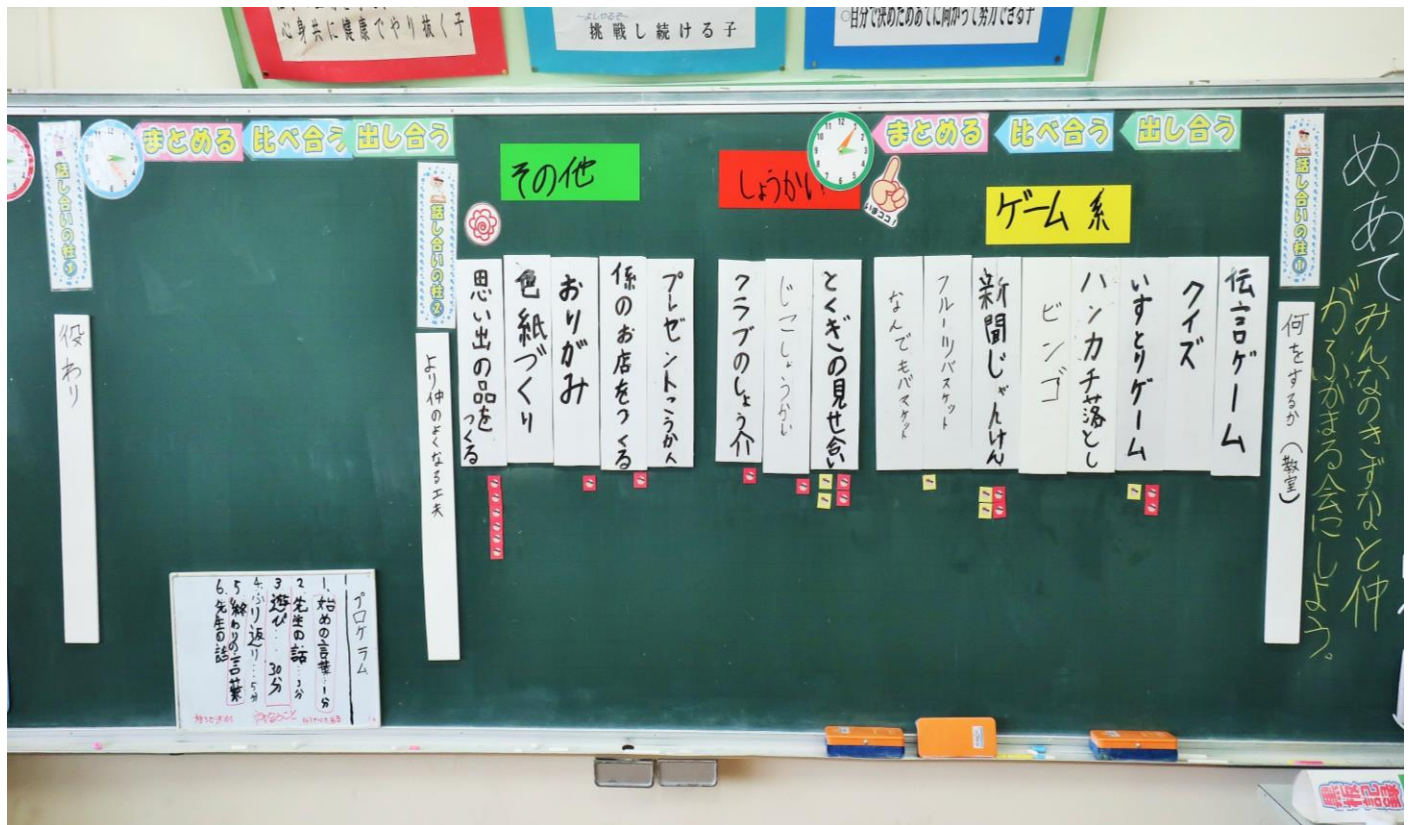 心身共に健康でやり抜く子
挑戦し続ける子
自分で決めためあてに向かって努力できる子
めあて
みんなのきずなと仲
がふかまる会にしよう。
話し合いの柱
何をするか(教室)
出し合う
比べ合う
まとめる
いまココ!
ゲーム系
伝言ゲーム
クイズ
いすとりゲーム
ハンカチ落とし
ビンゴ
新聞じゃんけん
フルーツバスケット
なんでもバスケット
しょうかい
とくぎの見せ合い
じこしょうかい
クラブのしょう介
その他
プレゼントこうかん
係のお店をつくる
おりがみ
色紙づくり
思い出の品をつくる
話し合いの柱2
より仲のよくなる工夫
出し合う
比べ合う
まとめる
話し合いの柱
役わり
プログラム
1. 始めの言葉…1分
2. 先生の話…3分
3 遊び…30分
4. ふり返り…5分
5 終わりの言葉
6. 先生の話
黒板記録